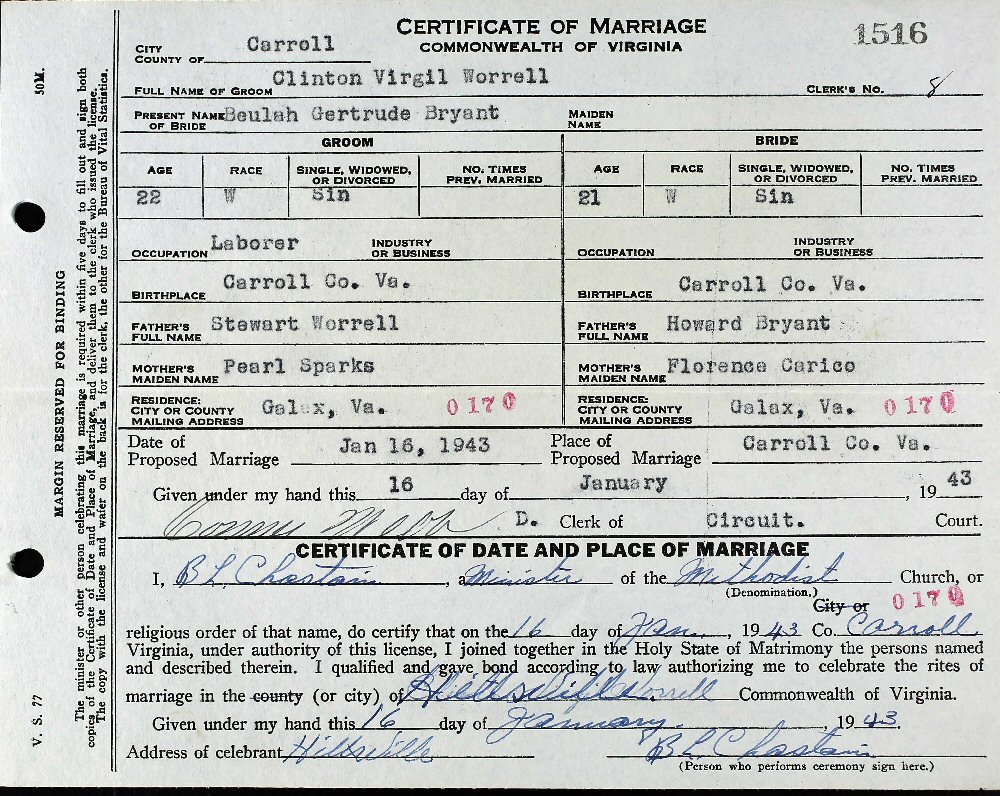 CERTIFICATE OF MARRIAGE
COMMONWEALTH OF VIRGINIA
1516
CITY
COUNTY OF Carroll
FULL NAME OF GROOM Clinton Virgil Worrell
CLERK'S NO. 8
PRESENT NAME OF BRIDE Beulah Gertrude Bryant MAIDEN NAME
GROOM BRIDE
AGE RACE SINGLE, WIDOWED, OR DIVORCED NO. TIMES PREV. MARRIED AGE RACE SINGLE, WIDOWED, OR DIVORCED NO. TIMES PREV. MARRIED
22 W Sin 21 W Sin
OCCUPATION Laborer INDUSTRY OR BUSINESS OCCUPATION INDUSTRY OR BUSINESS
BIRTHPLACE Carroll Co. Va. BIRTHPLACE Carroll Co. Va.
FATHER'S FULL NAME Stewart Worrell FATHER'S FULL NAME Howard Bryant
MOTHER'S MAIDEN NAME Pearl Sparks MOTHER'S MAIDEN NAME Florence Carico
RESIDENCE: CITY OR COUNTY MAILING ADDRESS Galax, Va. 0170 RESIDENCE: CITY OR COUNTY MAILING ADDRESS Galax, Va. 0170
Date of Proposed Marriage Jan 16, 1943 Place of Proposed Marriage Carroll Co. Va.
Given under my hand this 16 day of January, 1943
Webb D. Clerk of Circuit. Court.
CERTIFICATE OF DATE AND PLACE OF MARRIAGE
I, B L Chastain, a Minister of the Methodist Church, or
(Denomination.) City or 0170
religious order of that name, do certify that on the 16 day of Jan, 1943 Co. Carroll
Virginia, under authority of this license, I joined together in the Holy State of Matrimony the persons named
and described therein. I qualified and gave bond according to law authorizing me to celebrate the rites of
marriage in the county (or city) of Commonwealth of Virginia.
Given under my hand this 16 day of January, 1943.
Address of celebrant Hillsville B L Chastain
(Person who performs ceremony sign here.)
50M.
MARGIN RESERVED FOR BINDING
V. S. 77
The minister or other person celebrating this marriage is required within five days to fill out and sign both
copies of the Certificate of Date and Place of Marriage, and deliver them to the clerk who issued the license.
The copy with the license and water on the back is for the clerk, the other for the Bureau of Vital Statistics.